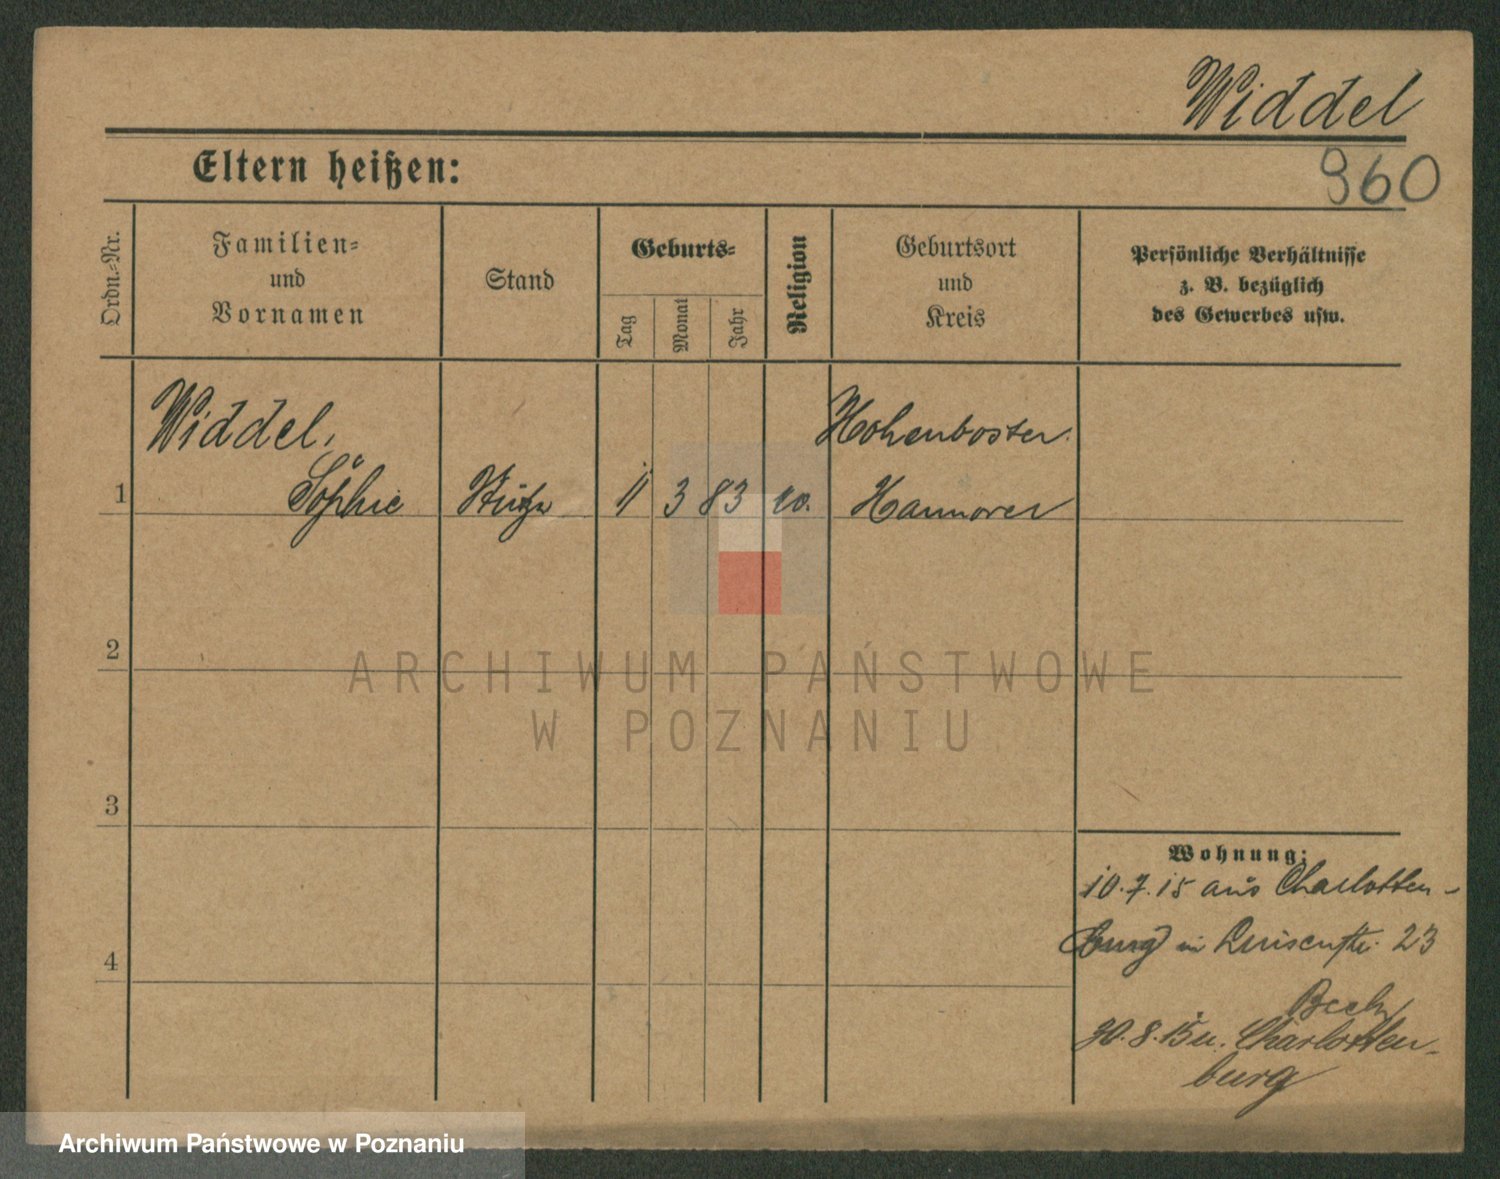 Widdel
960
Eltern heißen:
Ordn.-Nr.
Familien-
und
Vornamen
Stand
Geburts-
Tag
Monat
Jahr
Religion
Geburtsort
und
Kreis
Persönliche Verhältnisse
z. B. bezüglich
des Gewerbes usw.
Widdel,
Hohenbostel
1 Sophie Stütze 11 3 83 ev. Hannover
2
3
4
Wohnung:
10.7.15 aus Charlotten-
burg in Luisenstr. 23
Beck
30.8.15 n. Charlotten-
burg
ARCHIWUM PAŃSTWOWE
W POZNANIU
Archiwum Państwowe w Poznaniu